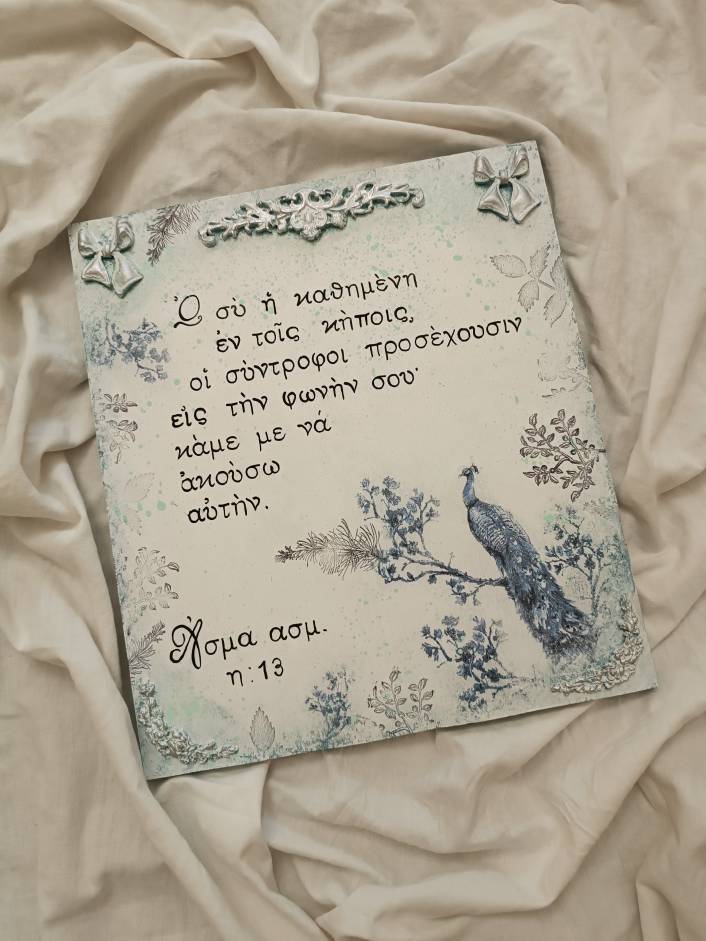 Ὦ σὺ ἡ καθημὲνη
ἐν τοῖς κὴποις,
οἱ σὺντροφοι προσὲχουσιν
εἰς τὴν φωνὴν σου·
κὰμε με νά
ἀκοὺσω
αὐτὴν.
Ἆσμα ασμ.
η:13